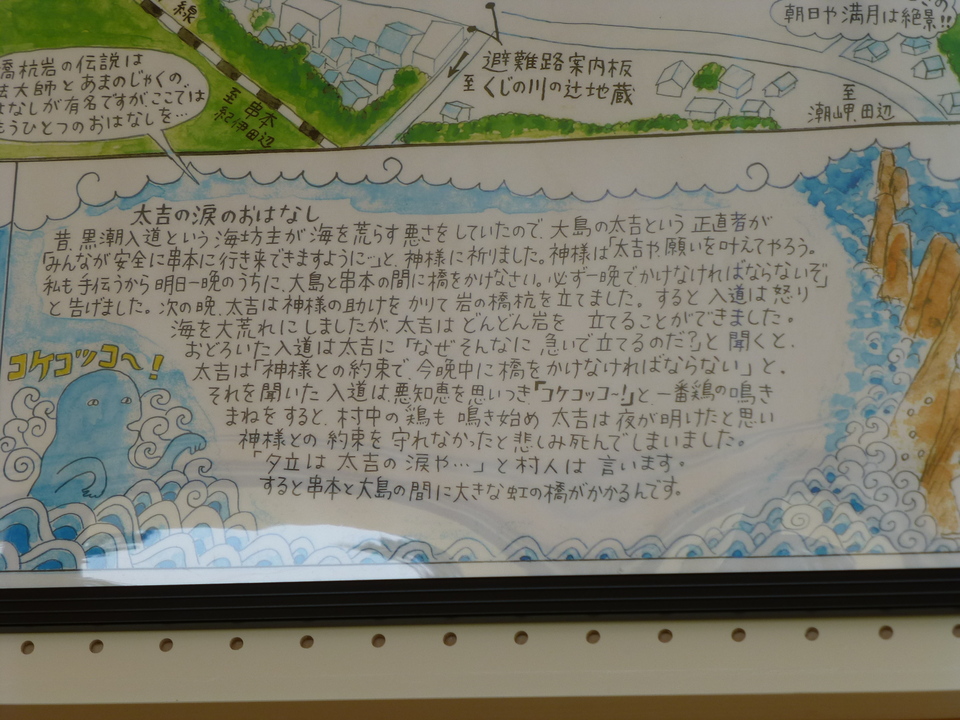 線
至串本
紀伊田辺
避難路案内板
至くじの川の辻地蔵
至
潮岬、田辺
朝日や満月は絶景!!
橋杭岩の伝説は
法大師とあまのじゃくの、
はなしが有名ですが、ここでは
もうひとつのおはなしを…
太吉の涙のおはなし
昔、黒潮入道という海坊主が海を荒らす悪さをしていたので、大島の太吉という正直者が
「みんなが安全に串本に行き来できますように…」と、神様に祈りました。神様は「太吉や、願いを叶えてやろう。
私も手伝うから明日一晩のうちに、大島と串本の間に橋をかけなさい。必ず一晩でかけなければならないぞ」
と告げました。次の晩、太吉は神様の助けをかりて岩の橋杭を立てました。すると入道は怒り
海を大荒れにしましたが、太吉はどんどん岩を立てることができました。
おどろいた入道は太吉に「なぜそんなに急いで立てるのだ?」と聞くと、
太吉は「神様との約束で、今晩中に橋をかけなければならない」と、
それを聞いた入道は、悪知恵を思いつき「コケコッコー!」と、一番鶏の鳴き
まねをすると、村中の鶏も鳴き始め太吉は夜が明けたと思い
神様との約束を守れなかったと悲しみ死んでしまいました。
「夕立は太吉の涙や…」と村人は言います。
すると串本と大島の間に大きな虹の橋がかかるんです。
コケコッコ〜!